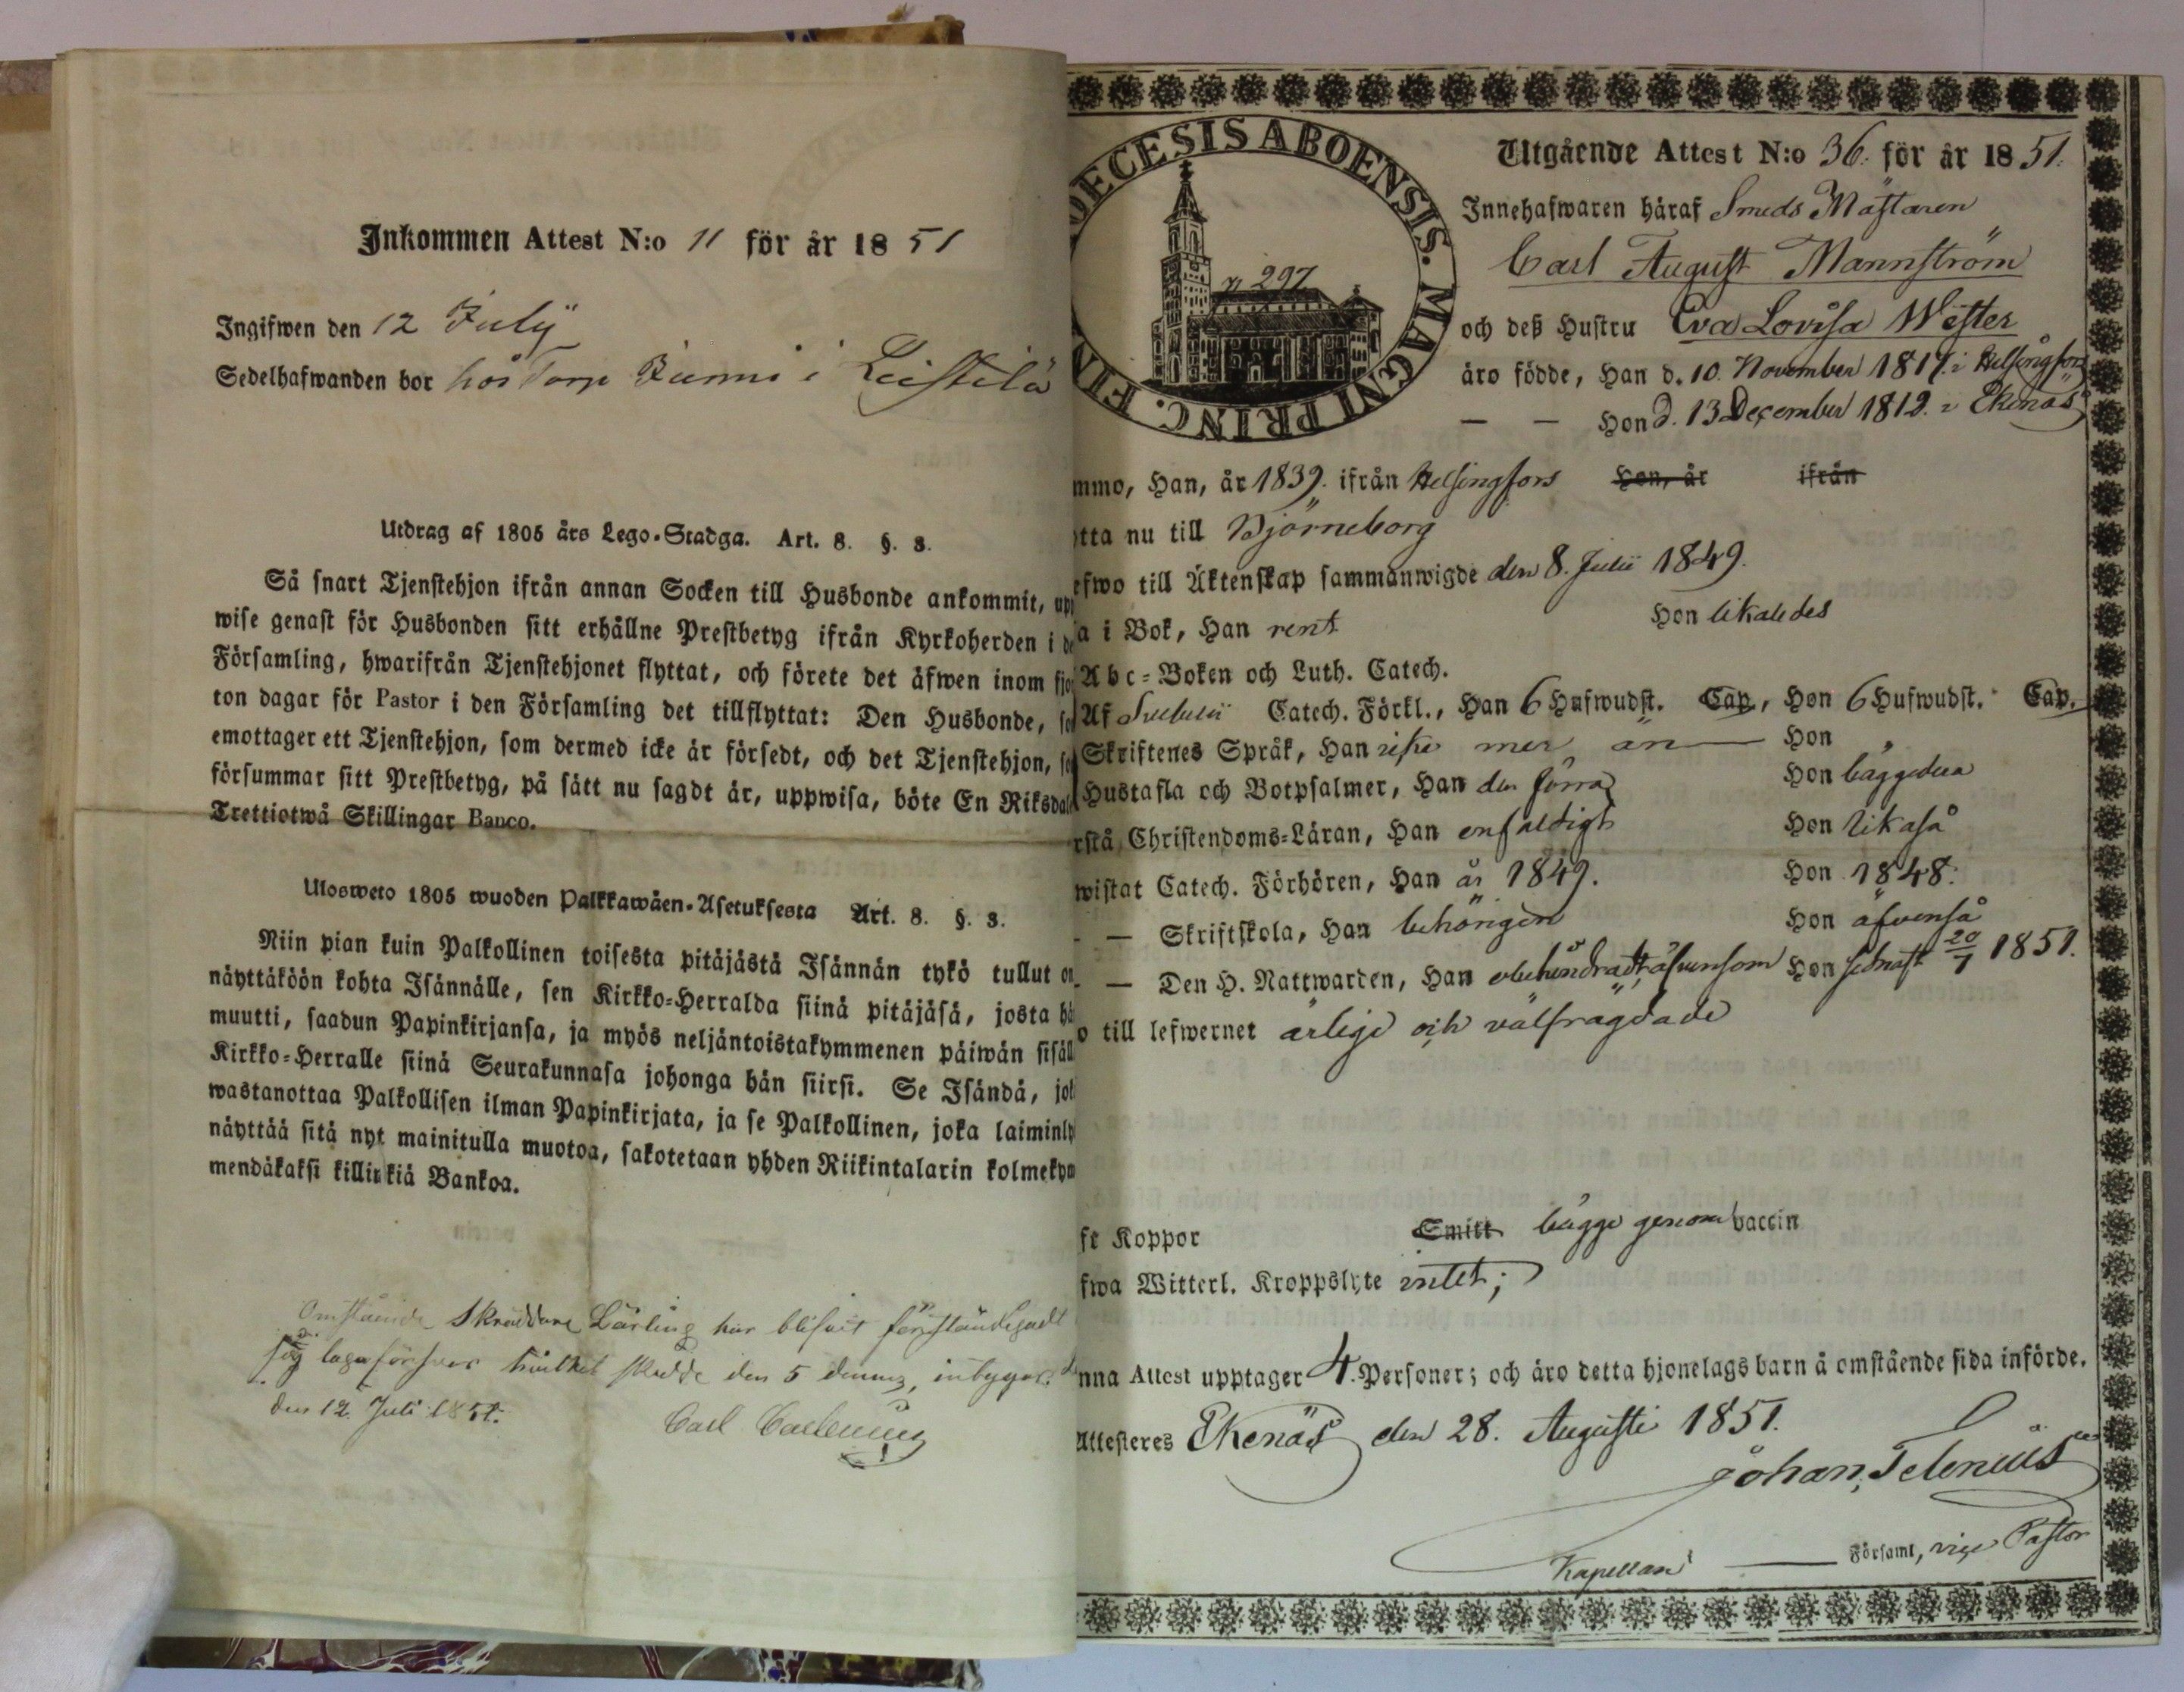 Inkommen Attest N:o 11 för år 1851
Ingifwen den 12 Julÿ
Sedelhafwanden bor hos Torp i Leistilä
Utdrag af 1805 års Lego-Stadga. Art. 8. §. 3.
Så snart Tjenstehjon ifrån annan Socken till Husbonde ankommit, upp
wise genast för Husbonden sitt erhållne Prestbetyg ifrån Kyrkoherden i de
Församling, hwarifrån Tjenstehjonet flyttat, och förete det äfwen inom fjor
ton dagar för Pastor i den Församling det tillflyttat: Den Husbonde, so
emottager ett Tjenstehjon, som dermed icke är försedt, och det Tjenstehjon, so
försummar sitt Prestbetyg, på sätt nu sagdt är, uppwisa, böte En Riksdal
Trettiotwå Skillingar Banco.
Ulosweto 1805 wuoden Palkkawäen-Asetuksesta Art. 8. §. 3.
Niin pian kuin Palkollinen toisesta pitäjästä Isännän tykö tullut on
näyttäköön kohta Isännälle, sen Kirkko-Herralda siinä pitäjäsä, josta hä
muutti, saadun Papinkirjansa, ja myös neljäntoistakymmenen päiwän sisäll
Kirkko-Herralle siinä Seurakunnasa johonga hän siirsi. Se Isändä, jok
wastanottaa Palkollisen ilman Papinkirjata, ja se Palkollinen, joka laiminly
näyttää sitä nyt mainitulla muotoa, sakotetaan yhden Riikintalarin kolmekym
mendäkaksi killinkiä Bankoa.
Omstående Skräddare Lärling har blifvit förständigadt
sig laga försvar hvilket skedde den 5 dennes,
den 12. Juli 1851.
Carl
DECESIS ABOENSIS. MAGNI PRINC. FIN
n 297
Utgående Attest N:o 36. för år 1851.
Innehafwaren häraf Smeds Mästaren
Carl August Mannström
och deß Hustru Eva Lovisa Wester
äro födde, Han d. 10. November 1817. i Helsingfors
— — Hon d. 13 December 1812. i Ekenäs
mmo, Han, år 1839. ifrån Helsingfors Hon, år ifrån
tta nu till Björneborg
efwo till Äktenskap sammanwigde den 8. Julii 1849.
a i Bok, Han rent Hon likaledes
Abc-Boken och Luth. Catech.
Af Svebelii Catech. Förkl., Han 6 Hufwudst. Cap, Hon 6 Hufwudst. Cap.
Skriftenes Språk, Han icke mer än — Hon "
Hustafla och Botpsalmer, Han den förra Hon bäggedera
rstå Christendoms-Läran, Han enfaldigt Hon likaså
wistat Catech. Förhören, Han år 1849. Hon 1848.
- — Skriftskola, Han behörigen Hon äfvenså
- — Den H. Nattwarden, Han obehindradt, äfvensom Hon sednast 20/7 1851.
o till lefwernet ärlige och välfrägdade
ft Koppor Smitt bägge genom vaccin
fwa Witterl. Kroppslyte intet;
nna Attest upptager 4. Personer; och äro detta hjonelags barn å omstående sida införde.
Attesteres Ekenäs den 28. Augusti 1851.
Johan Telenius
Kapellan — Församl, vice Pastor